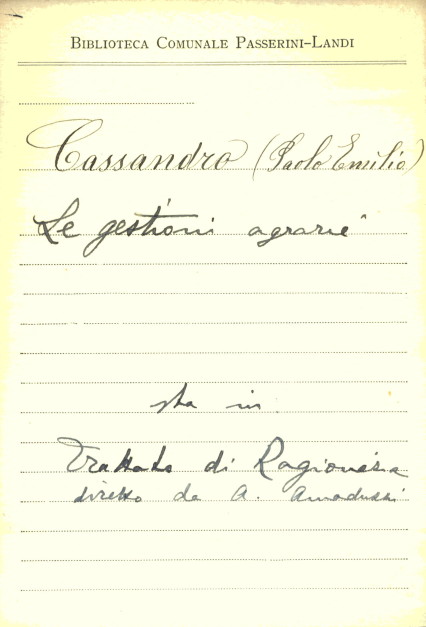 BIBLIOTECA COMUNALE PASSERINI-LANDI
Cassandro (Paolo Emilio)
Le gestioni agrarie
sta in
Trattato di Ragioneria
diretto da A. Amaduzzi